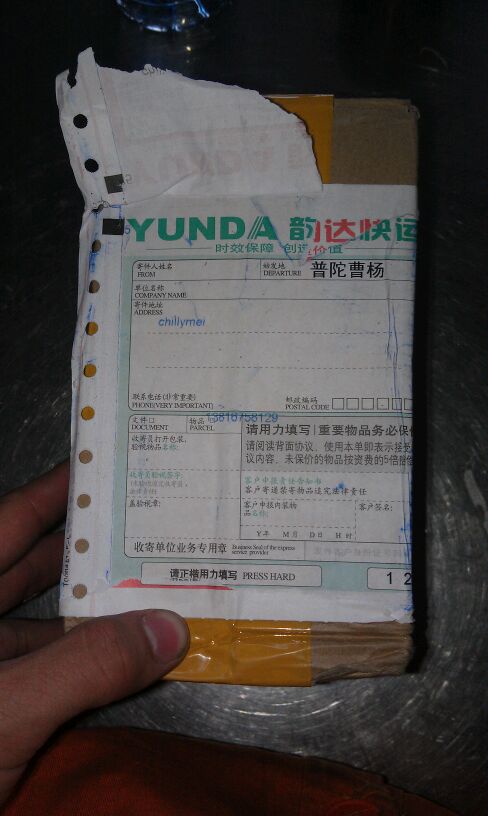 YUNDA 韵达快运
时效保障 创造价值
寄件人姓名
FROM
始发地
DEPARTURE
普陀曹杨
单位名称
COMPANY NAME
寄件地址
ADDRESS
chillymei
联系电话(非常重要)
PHONE(VERY IMPORTANT)
13816758129
邮政编码
POSTAL CODE
文件口
DOCUMENT
物品口
PARCEL
收寄员打开包装,
验视物品名称:
收寄员验视签字:
盖验视章:
请用力填写|重要物品务必保
请阅读背面协议、使用本单即表示接受
议内容, 未保价的物品按资费的5倍
客户申报责任告知书
客户寄递禁寄物品追究法律责任
客户申报内装物
品名称:
客户签名:
Y年 M月 D日 H时
收寄单位业务专用章
Business Seal of the express
service provider
请正楷用力填写 PRESS HARD
1 2